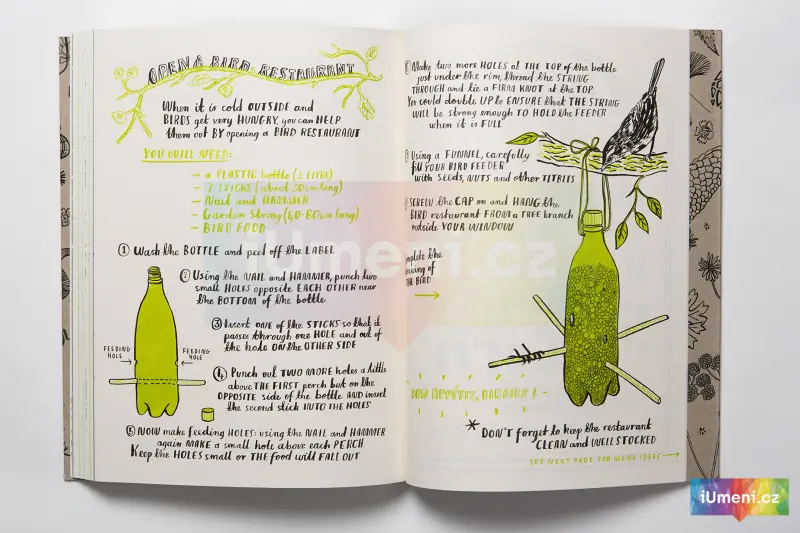 OPEN A BIRD RESTAURANT
When it is cold OUTSIDE and
BIRDS get very HUNGRY, you can HELP
them out BY opening a BIRD RESTAURANT
YOU WILL NEED:
– a PLASTIC bottle (1 LITRE)
– 2 STICKS (about 30cm long)
– Nail and HAMMER
– Garden String (40-60cm long)
– BIRD FOOD
① Wash the BOTTLE and peel off the LABEL
② Using the NAIL and HAMMER, punch two
small HOLES opposite EACH OTHER near
the BOTTOM of the bottle
③ Insert one of the STICKS so that it
passes through one HOLE and out of
the hole ON the OTHER SIDE
FEEDING HOLE
FEEDING HOLE
④ Punch out TWO MORE holes a little
above THE FIRST perch but on the
OPPOSITE side of the bottle AND insert
the second stick INTO THE HOLES
⑤ NOW make feeding HOLES: using the NAIL and HAMMER
again MAKE a small hole above each PERCH
Keep the HOLES small or THE food will FALL OUT
Make two more HOLES at THE TOP of the bottle
just under the rim, thread the STRING
THROUGH and tie a FIRM KNOT at the TOP.
You could double UP to ENSURE that THE STRING
WILL be strong enough TO HOLD the FEEDER
when it is FULL
Using a FUNNEL, carefully
fill YOUR BIRD FEEDER
with SEEDS, NUTS and other TITBITS
SCREW the CAP on and HANG the
BIRD restaurant FROM a TREE branch
outside YOUR WINDOW
the
of
THE BIRD
APPÉTIT, BIRDIES! –
* DON'T forget to keep the restaurant
CLEAN and WELL STOCKED
SEE NEXT PAGE FOR MENU IDEAS
iUmeni.cz
iUmeni.cz